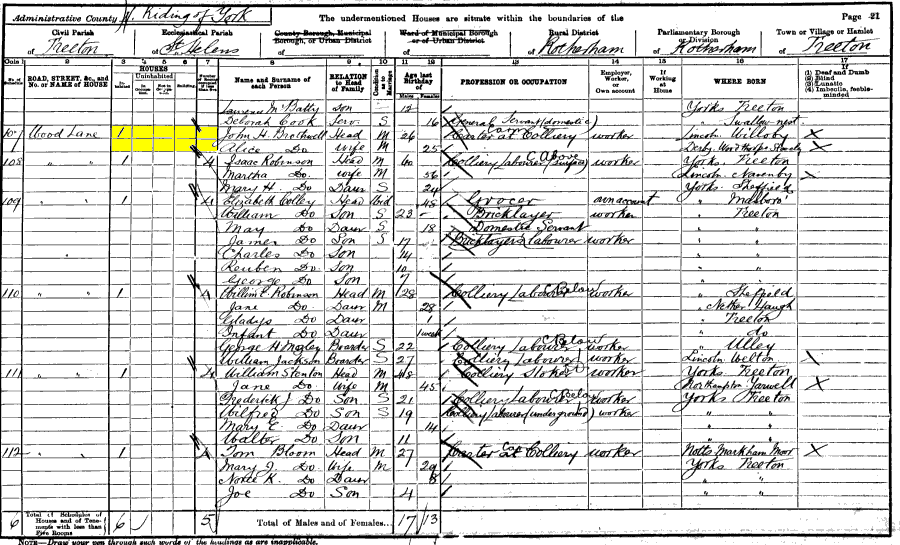 Administrative County W. Riding of York The undermentioned Houses are situate within the boundaries of the Page 21
Civil Parish Ecclesiastical Parish County Borough, Municipal Borough, or Urban District Ward of Municipal Borough or of Urban District Rural District Parliamentary Borough or Division Town or Village or Hamlet
of Treeton of St Helens of of of Rotherham of Rotherham of Treeton
Cols. 1 2 3 4 5 6 7 8 9 10 11 12 13 14 15 16 17
No. of Schedule ROAD, STREET, &c., and No. or NAME of HOUSE HOUSES Inhabited Uninhabited Building Name and Surname of each Person RELATION to Head of Family Condition as to Marriage Age last Birthday of Males Females PROFESSION OR OCCUPATION Employer, Worker, or Own account If Working at Home WHERE BORN If (1) Deaf and Dumb (2) Blind (3) Lunatic (4) Imbecile, feeble-minded
Son 12 Yorks Treeton
Deborah Cook Serv S 16 General Servant (domestic) " Swallow nest
107 Wood Lane 1 John H. Brethwell Head M 26 Carter at Colliery worker Lincoln Willoby
Alice Do Wife M 25 Derby
108 " " 1 4 Isaac Robinson Head M 60 Colliery Labourer Above (surface) worker Yorks. Treeton
Martha Do. Wife M 56 Lincoln Navenby
Mary H. Do Daur S 24 Yorks. Sheffield
109 " " 1 4 Elizabeth Colley Head Wid 48 Grocer own account " Masboro'
William Do Son S 23 Bricklayer worker " Treeton
May Do Daur S 18 Domestic Servant " "
James Do Son S 17 Bricklayers labourer worker " "
Charles Do Son 14 " "
Reuben Do Son 10 " "
George Do Son 7 " "
110 " " 1 4 Willm E. Robinson Head M 28 Colliery Labourer Below worker " Sheffield
Jane Do Daur M 28 " Nether Haugh
Gladys Do Daur 1 " Treeton
Infant Do Daur 1 week " do
George H Boarder S 22 Colliery Labourer Below worker " Ulley
William Jackson Boarder S 27 Colliery Labourer worker Lincoln Welton
111 " " 1 4 William Stenton Head M 48 Colliery Stoker worker Yorks Treeton
Jane Do Wife M 45 Northampton Yarwell
Frederick J Do Son S 21 Colliery Labourer Below worker Yorks Treeton
Wilfred Do Son S 19 Colliery Labourer (underground) worker " "
Mary E. Do Daur 14 " "
Walter Do Son 11 " "
112 " " 1 4 Tom Bloom Head M 27 Carter at Colliery worker Notts Markham Moor
Mary J. Do Wife M 29 Yorks Treeton
K. Do Daur 8 " "
Joe Do Son 4 " "
6 Total of Schedules of Houses and of Tenements with less than Five Rooms 6 5 Total of Males and of Females 17 13
NOTE—Draw your pen through such words of the headings as are inapplicable.